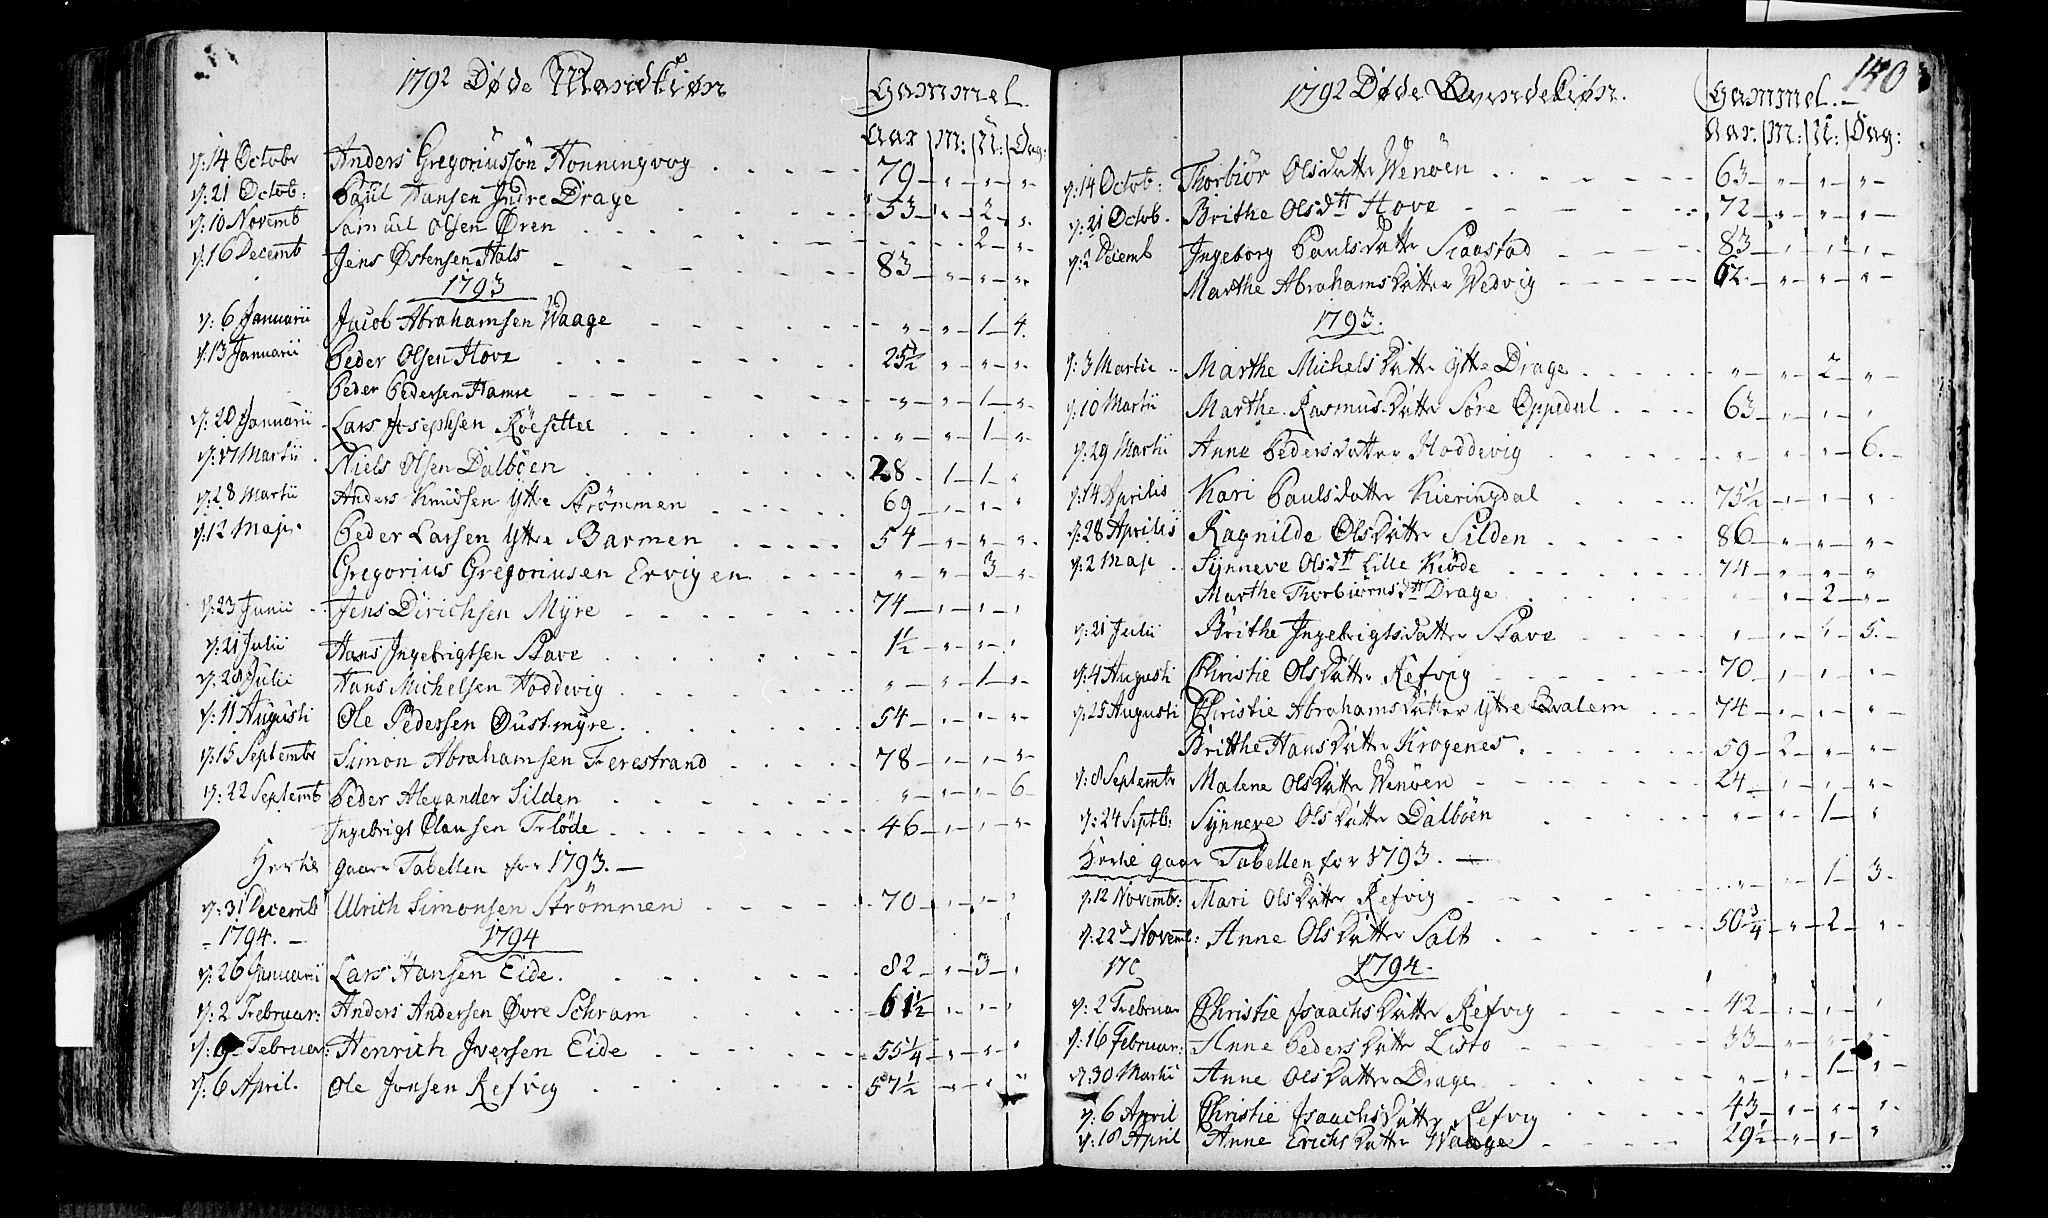 1792 Døde Mandkiøn
Gammel.
Aar M: U: Dag:
d: 14 Octobr Anders Gregoriussøn Honningvog 79 — " — " — "
d: 21 Octob: Paul Hansen Indre Drage 53 — " — 2 — "
d: 10 Novemb Samuel Olsen Øren — 2 — "
d: 16 Decemb Jens Østensen Hals 83 — " — " — "
1793
d: 6 Januarii Jacob Abrahamsen Waage " — " — 1 — 4.
d: 13 Januarii Peder Olsen Hove 25½ " — " — "
Peder Pedersen Hamre " — " — 1 — "
d: 20 Januarii Lars Josephsen Röesettee " — " — 1 — "
d: 17 Martii Niels Olsen Dalböen 28 — 1 — 1 — "
d: 28 Martii Anders Knudsen Ytte Strömmen 69 — " — " — "
d: 12 Maji Peder Larsen Ytte Barmen 54 — " — " — "
Gregorius Gregoriusen Ervigen " — " — 3 — "
d: 23 Junii Jens Dirichsen Myre 74 — " — " — "
d: 21 Julii Hans Ingebrigtsen Stave 1½ " — " — "
d: 28 Julii Hans Michelsen Hoddevig " — " — 1 — "
d: 11 Augusti Ole Pedersen Dustmyre. 54 — " — " — "
d: 15 Septembr Simon Abrahamsen Ferestrand 78 — " — " — "
d: 22 Septemb Peder Alexander Silden " — " — " — 6
Ingebrigt Clausen Frløde 46 — " — " — "
Hertil gaar Tabellen for 1793. —
d: 31 Decemb Ulrich Simonsen Strömmen 70 — " — " — "
- 1794. - 1794
d: 26 Januarii Lars Hansen Eide. 82 — " — 3 — "
d: 2 Februar: Anders Andersen Øvre Schram 61½ " — " — "
d: 9 Februar: Henrich Iversen Eide 55¼ " — " — "
d: 6 April. Ole Jonsen Refvig 57½ " — " — "
140
1792 Døde Qvindekiøn.
Gammel. —
Aar. M: U: Dag:
d: 14 Octob: Thorbiør Olsdatter Wenöen 63 — " — " — "
d: 21 Octob. Brithe Olsdtt Hove 72 — " — " — "
d: 2 Decemb Ingeborg Paulsdatter Staastad 83 — " — " — "
Marthe Abrahamsdatter Wedvig 62 — " — " — "
1793.
d: 3 Martii Marthe Michelsdatter Ytte Drage " — " — 2 — "
d: 10 Martii Marthe Rasmusdatter Søre Oppedal 63 — " — " — "
d: 29 Martii Anne Pedersdatter Hoddevig " — " — " — 6.
d: 14 Aprilis Kari Paulsdatter Kieringdal 75½ — " — " — "
d: 28 Aprilis Ragnilde Olsdatter Silden 86 — " — " — "
d: 2 Maji Synneve Olsdtt Lille Kiøde 74 — " — " — "
Marthe Thorbiørnsdtt Drage " — " — 2 — "
d: 21 Julii Brithe Ingebrigtsdatter Stave " — " — " — 5.
d: 4 Augusti Christie Olsdatter Refvig 70 — " — " — "
d: 25 Augusti Christie Abrahamsdatter Ytre Qvalem 74 — " — " — "
Britthe Hansdatter Krogenes. 59 — 2 — " — "
d: 8 Septembr Malene Olsdatter Wenöen 24 — " — " — "
d: 24 Septb: Synneve Olsdatter Dalböen " — " — 1 — "
Hertil gaar Tabellen for 1793. —
d: 12 Novembr: Mari Olsdatter Refvig " — " — 1 — 3.
d: 22d Novemb: Anne Olsdatter Salt 50¾ — " — 2 — "
17C 1794.
d: 2 Februar Christie Isaachsdatter Refvig 42 — " — " — "
d: 16 Februar: Anne Pedersdatter Listo 33 — " — " — "
d: 30 Martii Anne Olsdatter Drage " — " — 1 — "
d: 6 April Christie Isaachsdatter Refvig 43 — " — " — "
d: 18 April Anne Erichsdatter Waage 29½ — " — " — "